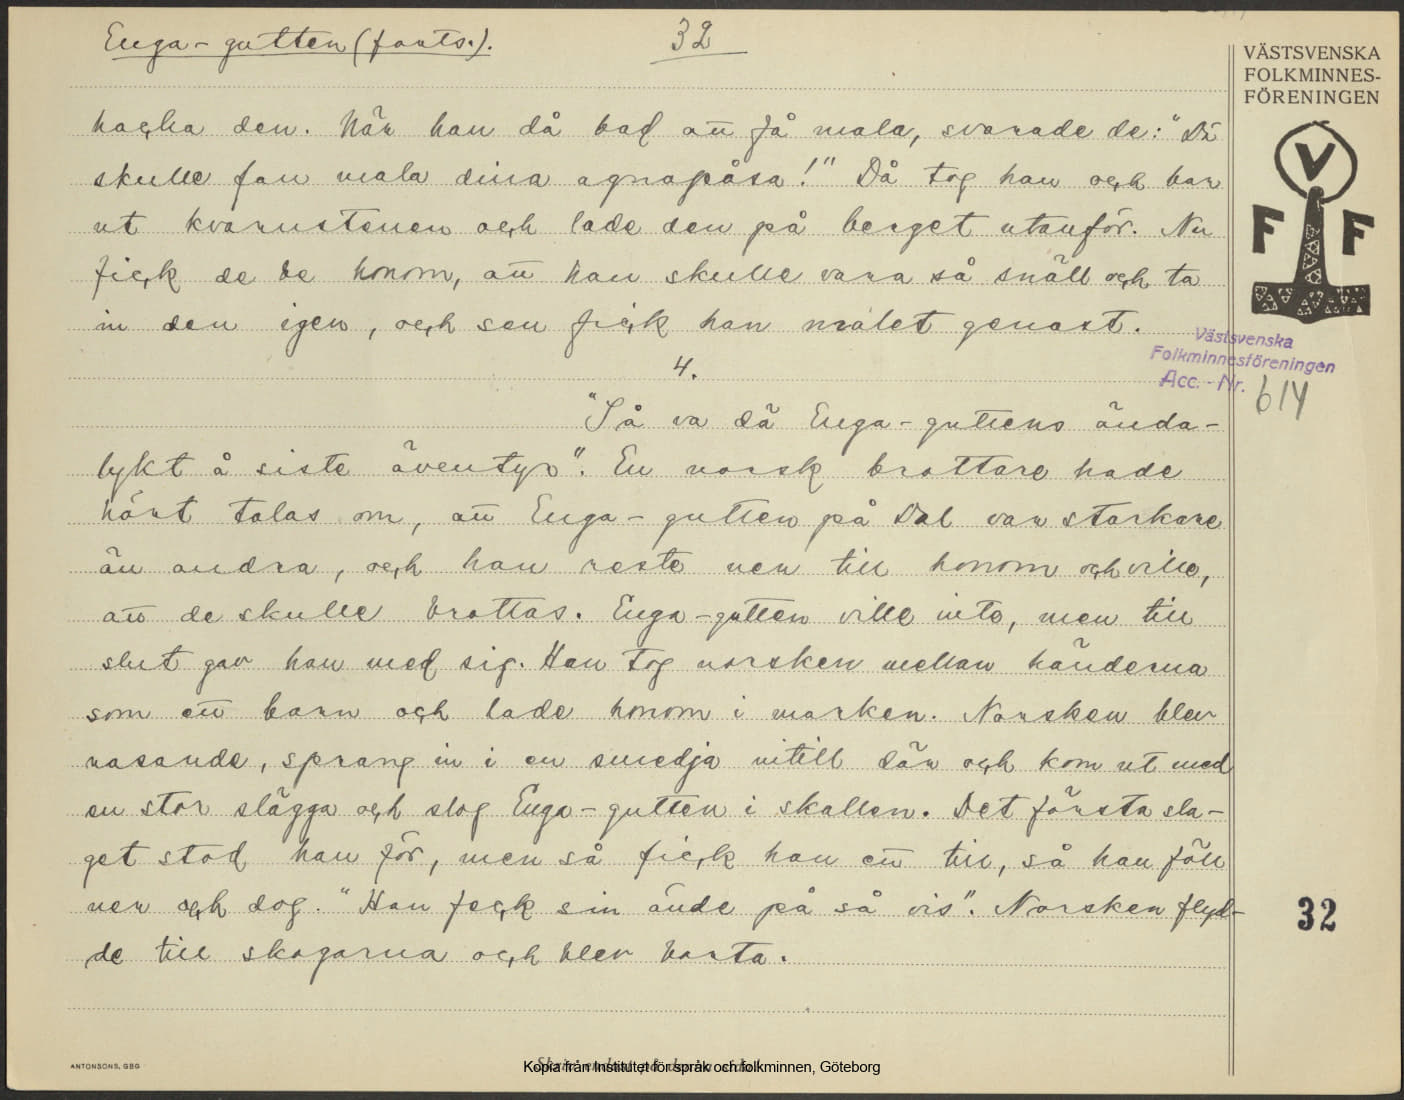 Enga-gutten (forts.).
32
VÄSTSVENSKA
FOLKMINNES-
FÖRENINGEN
hacka den. När han då bad att få mala, svarade de: "Då
skulle fan mala dina agnapåsa!" Då tog han och bar
ut kvarnstenen och lade den på berget utanför. Nu
fick de be honom, att han skulle vara så snäll och ta
in den igen, och sen fick han malet genast.
V
F F
Västsvenska
Folkminnesföreningen
Acc. - Nr. 614
4.
"Så va dä Enga-guttens ända-
lykt å siste äventyr". En norsk brottare hade
hört talas om, att Enga-gutten på Dal var starkare
än andra, och han reste ner till honom och ville,
att de skulle brottas. Enga-gutten ville inte, men till
slut gav han med sig. Han tog norsken mellan händerna
som ett barn och lade honom i marken. Norsken blev
rasande, sprang in i en smedja intill där och kom ut med
en stor slägga och slog Enga-gutten i skallen. Det första sla-
get stod han för, men så fick han ett till, så han föll
ner och dog. "Han feck sin ände på så vis". Norsken flyd-
de till skogarna och blev borta.
32
ANTONSONS, GBG
Kopia från Institutet för språk och folkminnen, Göteborg